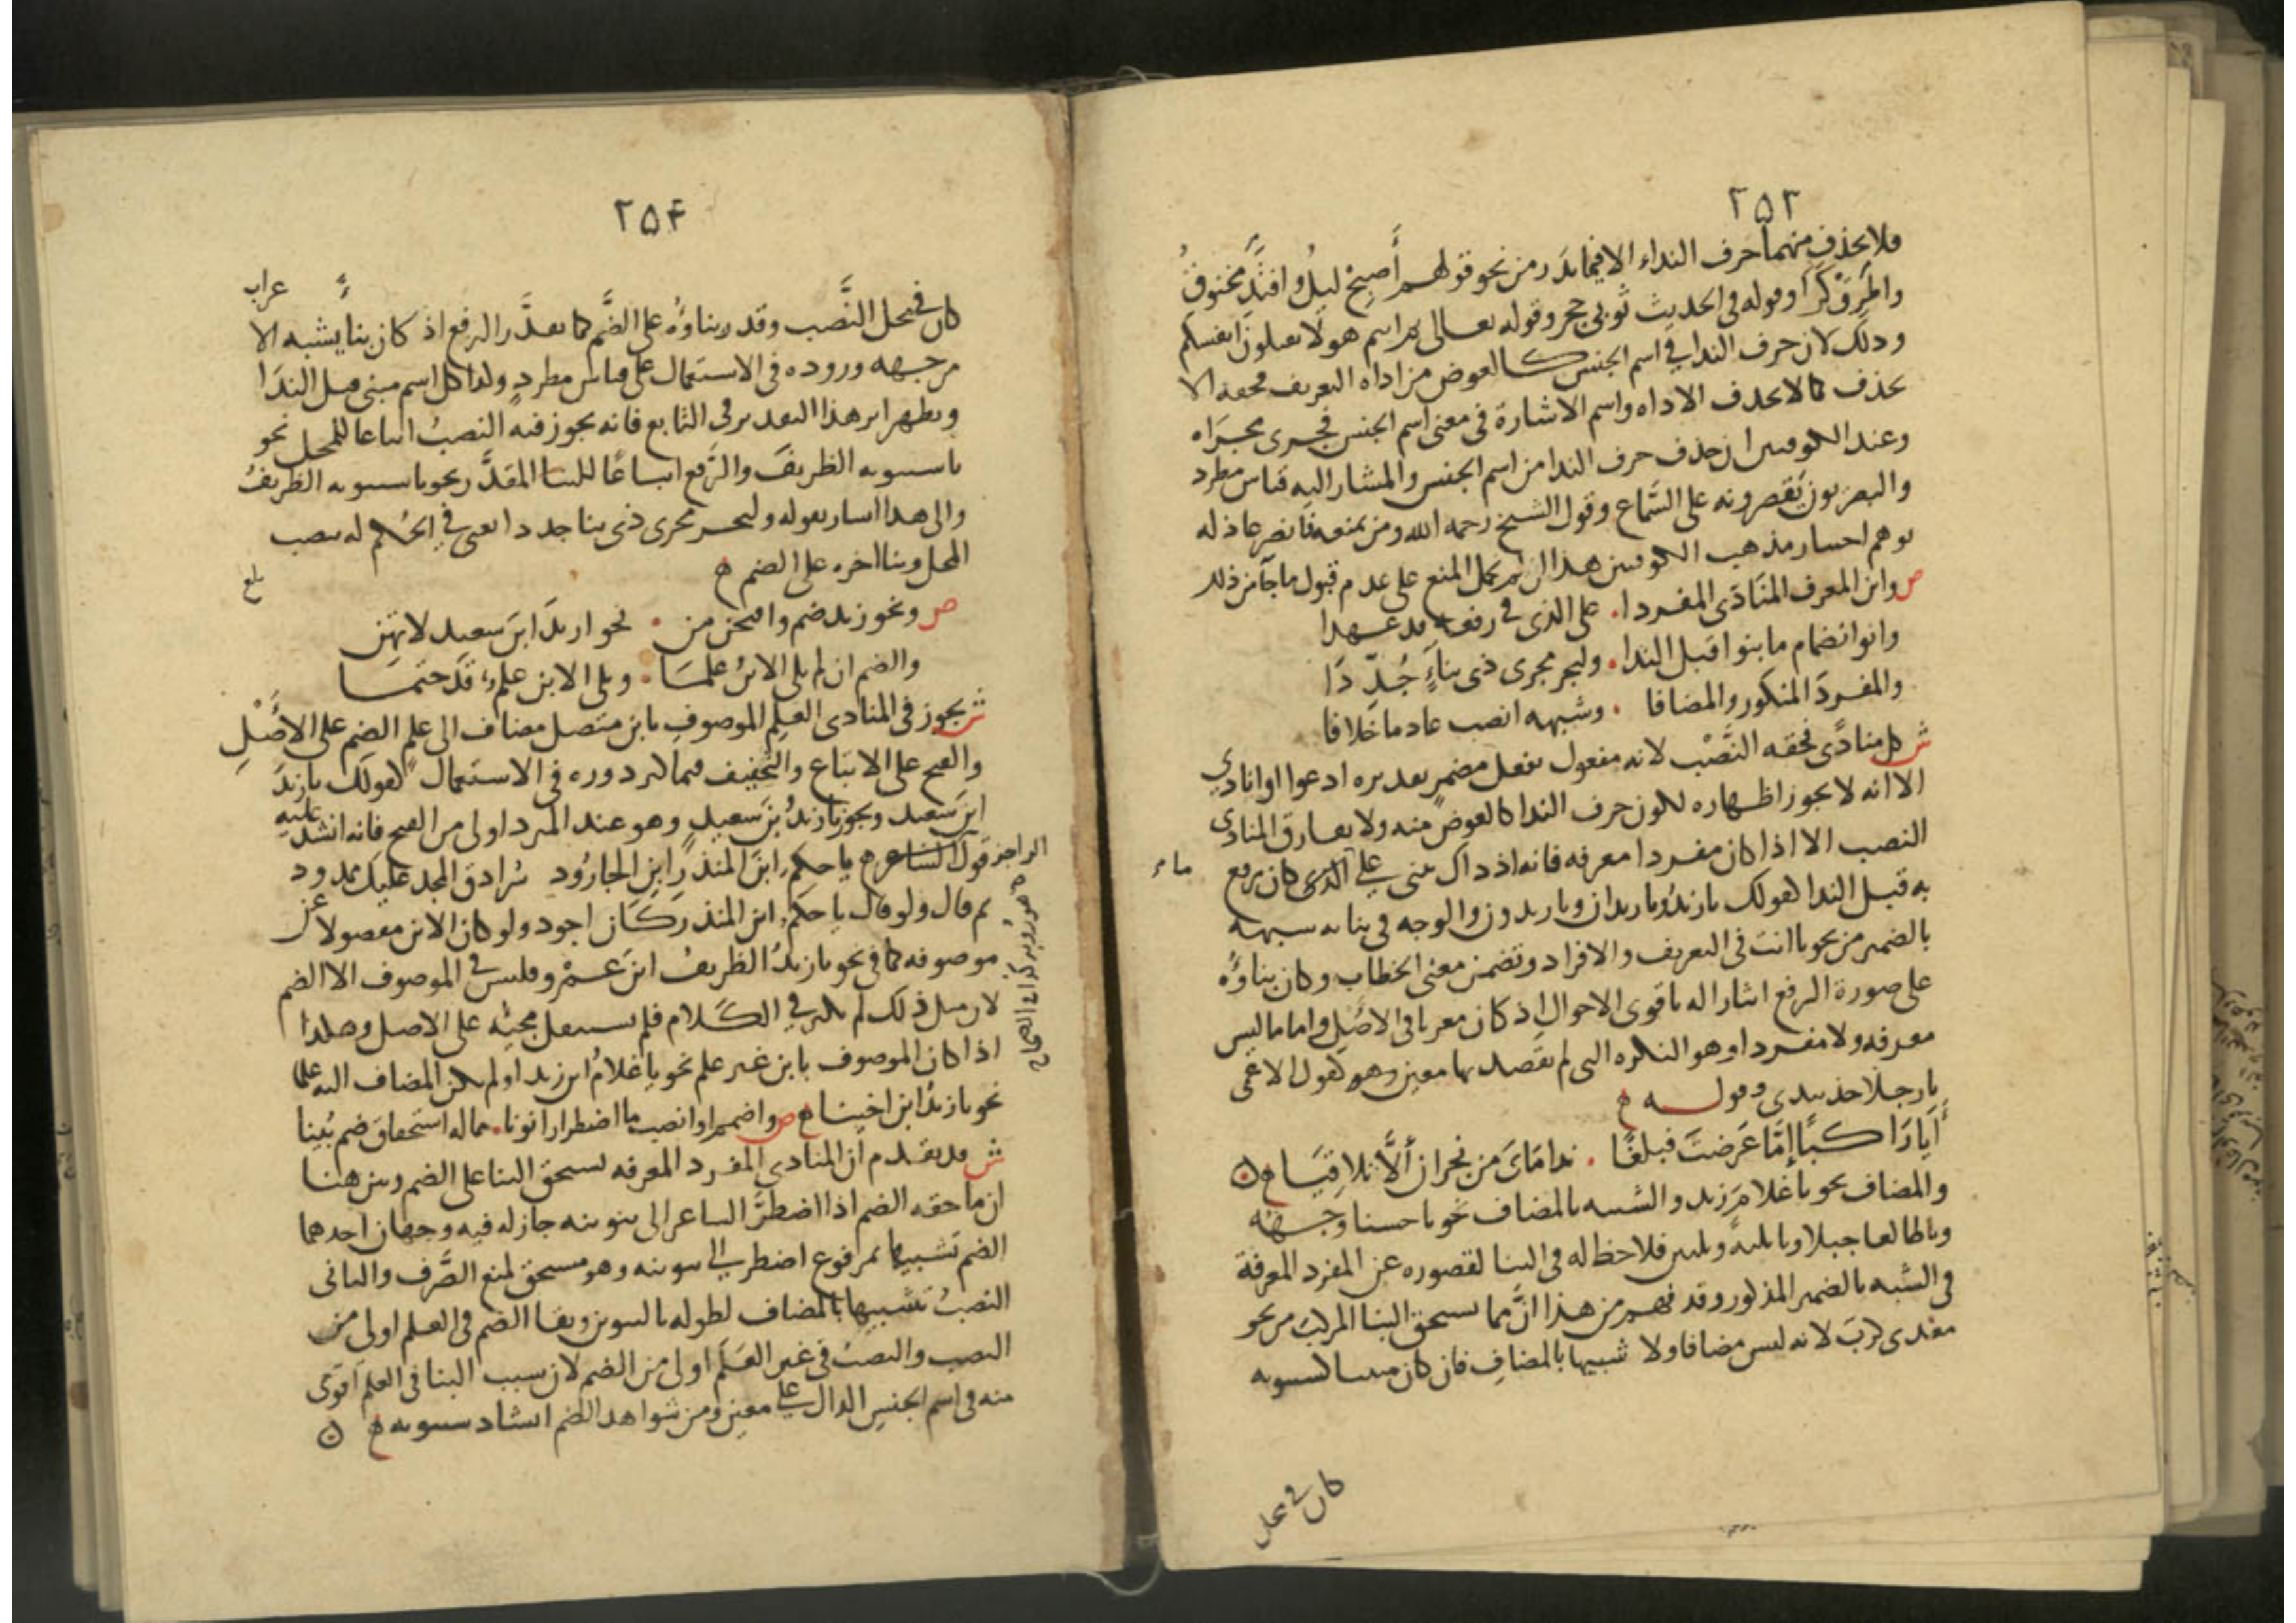 ٢٥٣
فلا يحذف منهما حرف النداء الا فيما ندر من نحو قولهم أصبح ليل وافتد مخنوق
واطرق كرا وقوله في الحديث ثوبي حجر وقوله تعالى ثم انتم هولا تقتلون انفسكم
وذلك لان حرف الندا في اسم الجنس كالعوض من اداة التعريف فحقه الا
يحذف كما لا تحذف الاداة واسم الاشارة في معنى اسم الجنس فجرى مجراه
وعند الكوفيين ان حذف حرف الندا من اسم الجنس والمشار اليه قياس مطرد
والبصريون يقصرونه على السماع وقول الشيخ رحمه الله ومن يمنعه فانصر عاذله
يوهم اختيار مذهب الكوفيين هذا ان لم يحمل المنع على عدم قبول ما جا من ذلك
ص وابن المعرف المنادى المفردا . على الذي في رفعه قد عهدا
وانو انضمام ما بنوا قبل الندا . وليجر مجرى ذي بناء جددا
والمفرد المنكور والمضافا . وشبهه انصب عادما خلافا
ش كل منادى فحقه النصب لانه مفعول بفعل مضمر تقديره ادعوا او انادي
الا انه لا يجوز اظهاره لكون حرف الندا كالعوض منه ولا يفارق المنادى
النصب الا اذا كان مفردا معرفة فانه اذ ذاك يبنى على الذي كان يرفع ماء
به قبل الندا كقولك يا زيد ويا زيدان ويا زيدون والوجه في بنائه شبهه
بالضمير من نحو يا انت في التعريف والافراد وتضمن معنى الخطاب وكان بناؤه
على صورة الرفع اشارا له باقوى الاحوال اذ كان معربا في الاصل واما ما ليس
معرفة ولا مفردا وهو النكرة التي لم يقصد بها معين وهو كقول الاعمى
يا رجلا خذ بيدي وقوله
أيا راكبا إما عرضت فبلغا . نداماي من نجران ألا تلاقيا
والمضاف نحو يا غلام زيد والشبيه بالمضاف نحو يا حسنا وجهه
ويا طالعا جبلا ويا ثلثة وثلثين فلا حظ له في البنا لقصوره عن المفرد المعرفة
في الشبه بالضمير المذكور وقد فهم من هذا ان مما يستحق البنا المركب من نحو
معدي كرب لانه ليس مضافا ولا شبيها بالمضاف فان كان مبنيا كسيبويه
كان في محل
٢٥٤
كان في محل النصب وقدر بناؤه على الضم كما تعذر الرفع اذ كان بنا يشبه الا عراب
من جهة وروده في الاستعمال على قياس مطرد وكذا كل اسم مبني قبل الندا
ويظهر اثر هذا التقدير في التابع فانه يجوز فيه النصب اتباعا للمحل نحو
يا سيبويه الظريف والرفع اتباعا للبنا المقدر نحو يا سيبويه الظريف
والى هذا اشار بقوله وليجر مجرى ذي بنا جددا يعني في الحكم له بنصب
المحل وبنا اخره على الضم
بلغ
ص ونحو زيد ضم وافتحن من . نحو ازيد ابن سعيد لا تهن
والضم ان لم يل الابن علما . ويل الابن علم قد حتما
ش يجوز في المنادى العلم الموصوف بابن متصل مضاف الى علم الضم على الاصل
والفتح على الاتباع والتخفيف فيما كثر دوره في الاستعمال كقولك يا زيد
ابن سعيد ويجوز يا زيد بن سعيد وهو عند المبرد اولى من الفتح فانه انشد عليه
قول الشاعر الراجز يا حكم ابن المنذر ابن الجارود سرادق المجد عليك ممدود
ثم قال ولو قال يا حكم ابن المنذر كان اجود ولو كان الابن مفصولا عن
موصوفه كما في نحو يا زيد الظريف ابن عمرو فليس في الموصوف الا الضم
لان مثل ذلك لم يكثر في الكلام فلم يستثقل مجيئه على الاصل وهكذا
اذا كان الموصوف بابن غير علم نحو يا غلام ابن زيد او لم يكن المضاف اليه علما
نحو يا زيد ابن اخينا ص واضمم او انصب ما اضطرارا نونا . مما له استحقاق ضم بينا
ش قد تقدم ان المنادى المفرد المعرفة يستحق البنا على الضم وبين هنا
ان ما حقه الضم اذا اضطر الشاعر الى تنوينه جاز له فيه وجهان احدهما
الضم تشبيها بمرفوع اضطر الى تنوينه وهو مستحق لمنع الصرف والثاني
النصب تشبيها بالمضاف لطوله بالتنوين وبقا الضم في العلم اولى من
النصب والنصب في غير العلم اولى من الضم لان سبب البنا في العلم اقوى
منه في اسم الجنس الدال على معين ومن شواهد الضم انشاد سيبويه